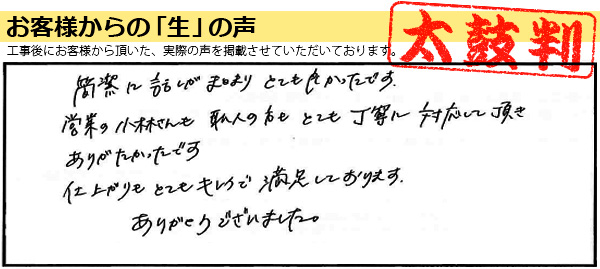 お客様からの「生」の声
工事後にお客様から頂いた、実際の声を掲載させていただいております。
太鼓判
簡潔に話しがまとまり とても良かったです.
営業の小林さんも 職人の方も とても 丁寧に 対応して頂き
ありがたかったです
仕上がりも とてもキレイで 満足しております.
ありがとうございました。